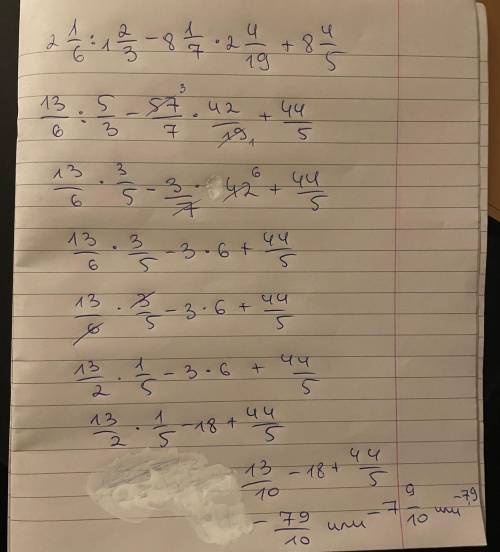 2 1/6 : 1 2/3 - 8 1/7 · 2 4/19 + 8 4/5
13/6 : 5/3 - 57/7 3 · 42/19 1 + 44/5
13/6 · 3/5 - 3/7 · 42 6 + 44/5
13/6 · 3/5 - 3 · 6 + 44/5
13/6 · 3/5 - 3 · 6 + 44/5
13/2 · 1/5 - 3 · 6 + 44/5
13/2 · 1/5 - 18 + 44/5
13/10 - 18 + 44/5
- 79/10 или -7 9/10 или -7,9